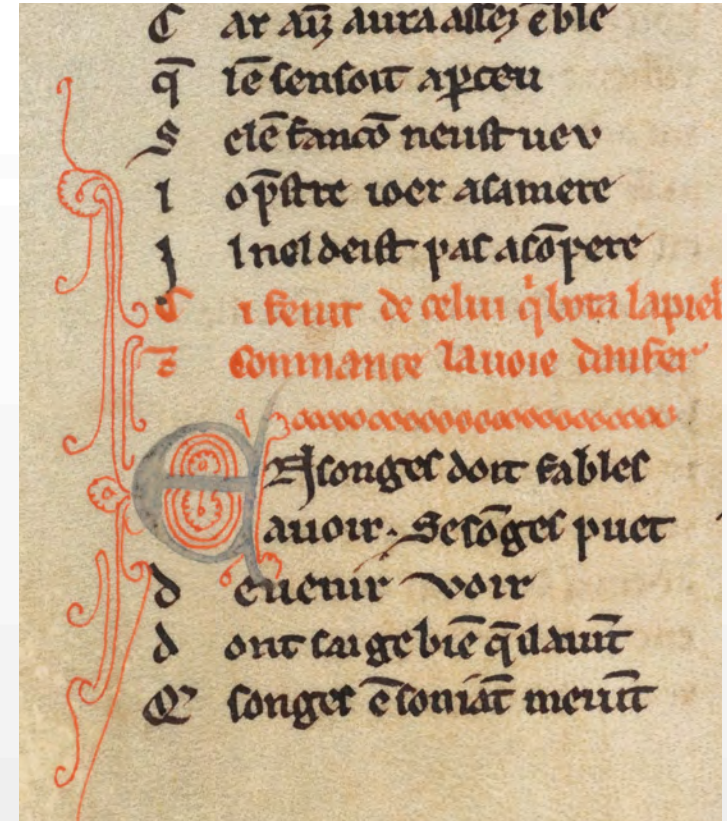 C ar aū aura assez ēble
q̄ lē sensoit ap̱ceu
S elē fancō neust ueu
I op̄stre ioer asamere
I l nel deist pas acōpere
C i fenit de celui q̇ bota lapiel
⁊ conmance lauoie danfer
En songes doit fables
auoir. Se sōges puet
d euenir voir
d ont sai ge biē q̄ il auīt
Q songes ē soniāt meuīt